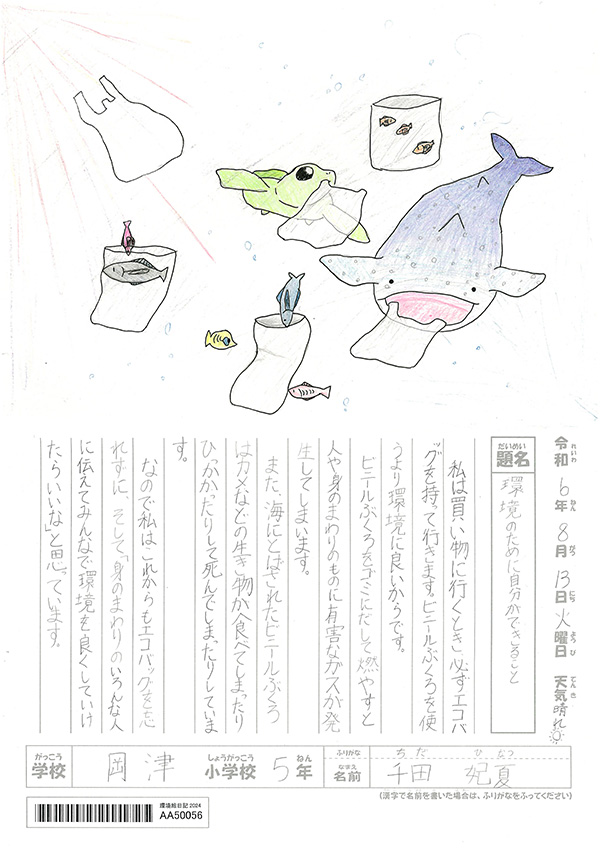 令和6年8月13日火曜日 天気晴れ
れいわ ねん がつ にち ようび てんき
だいめい
題名 環境のために自分ができること
私は買い物に行くとき、必ずエコバ
ッグを持って行きます。ビニールぶくろを使
うより環境に良いからです。
ビニールぶくろをゴミにだして燃やすと
人や身のまわりのものに有害なガスが発
生してしまいます。
また、海にとばされたビニールぶくろ
はカメなどの生き物が食べてしまったり
ひっかかったりして死んでしまったりしていま
す。
なので私はこれからもエコバックを忘
れずに、そして「身のまわりのいろんな人
に伝えてみんなで環境を良くしていけ
たらいいな」と思っています。
がっこう しょうがっこう ねん ふりがな ちだ ひなつ
学校 岡津 小学校 5年 なまえ 名前 千田 妃夏
(漢字で名前を書いた場合は、ふりがなをふってください)
環境絵日記2024
AA50056